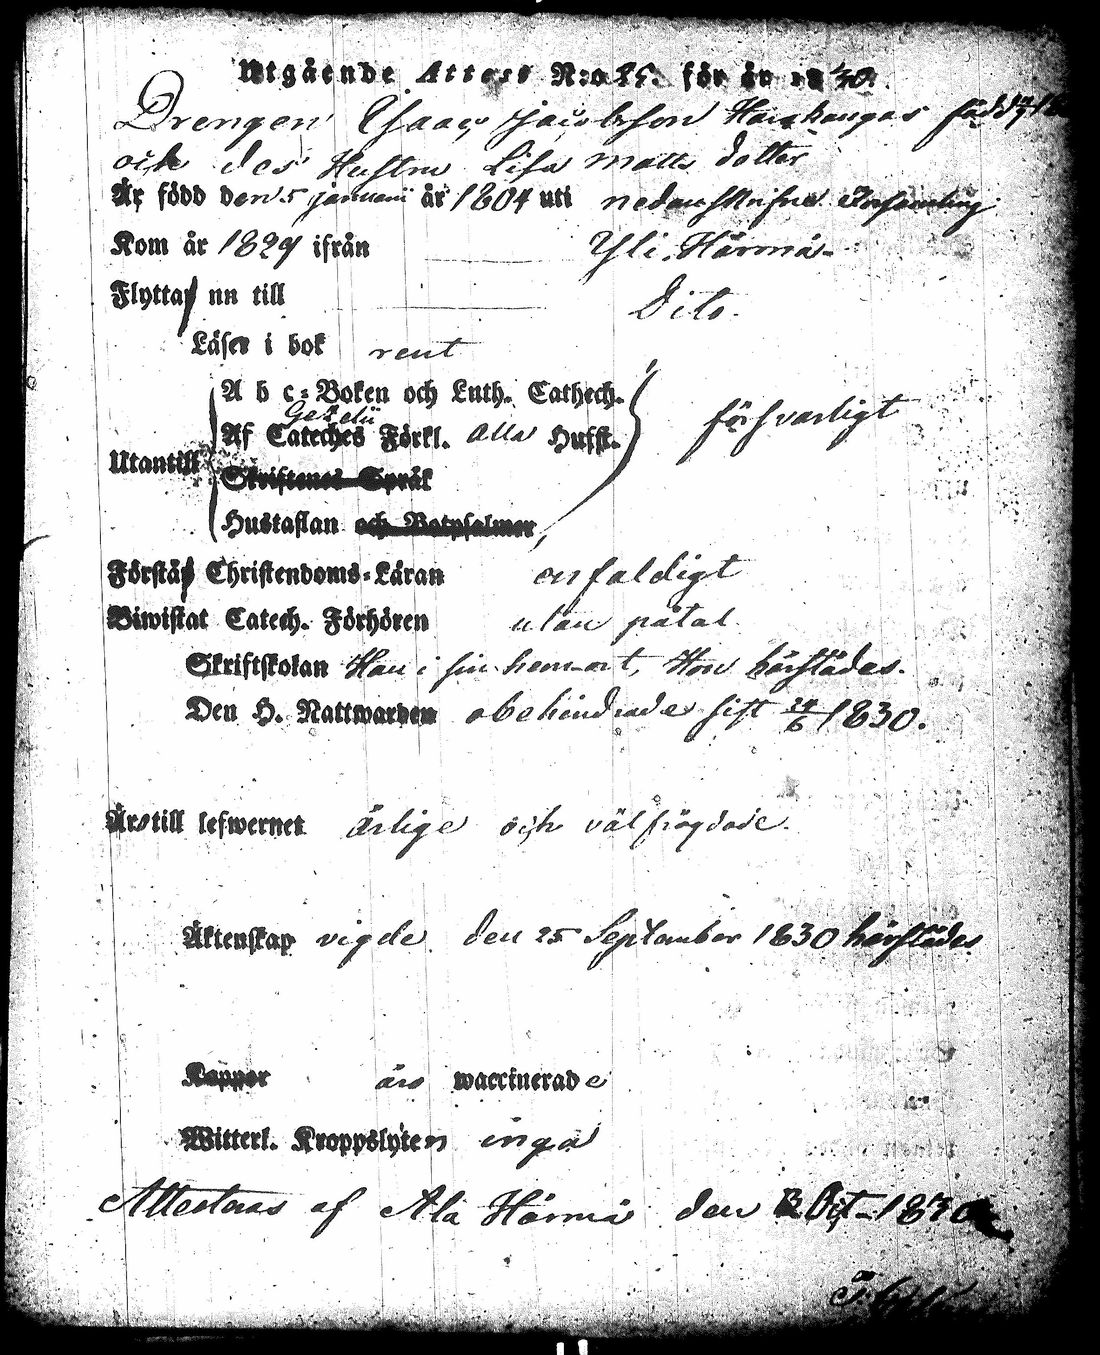 Utgående Attest N:o 25. för år 1830.
Drengen Isaac Jacobsson Haukangas född
och des Hustru Lisa Matts dotter
Är född den 5 januarii år 1804 uti nedanskrifne Församling
Kom år 1829 ifrån Yli Härmä
Flytta nu till Dito.
Läser i bok rent
A b c-Boken och Luth. Cathech.
Gezelii
Af Cateches Förkl. alla Hufst. försvarligt
Utantill
Skriftenes Språk
Hustaflan och Botpsalmer
Förstå Christendoms-Läran enfaldigt
Biwistat Catech. Förhören utan påtal.
Skriftskolan Han i sin hemort, Hon härstädes.
Den H. Nattwarden obehindrade sist 24/6 1830.
Äro till lefwernet ärlige och välfrägdade.
Äktenskap vigde den 25 September 1830 härstädes
Koppor äro waccinerade
Witterl. Kroppslyten inga
Attesteras af Ala Härmä den Oct. 1830